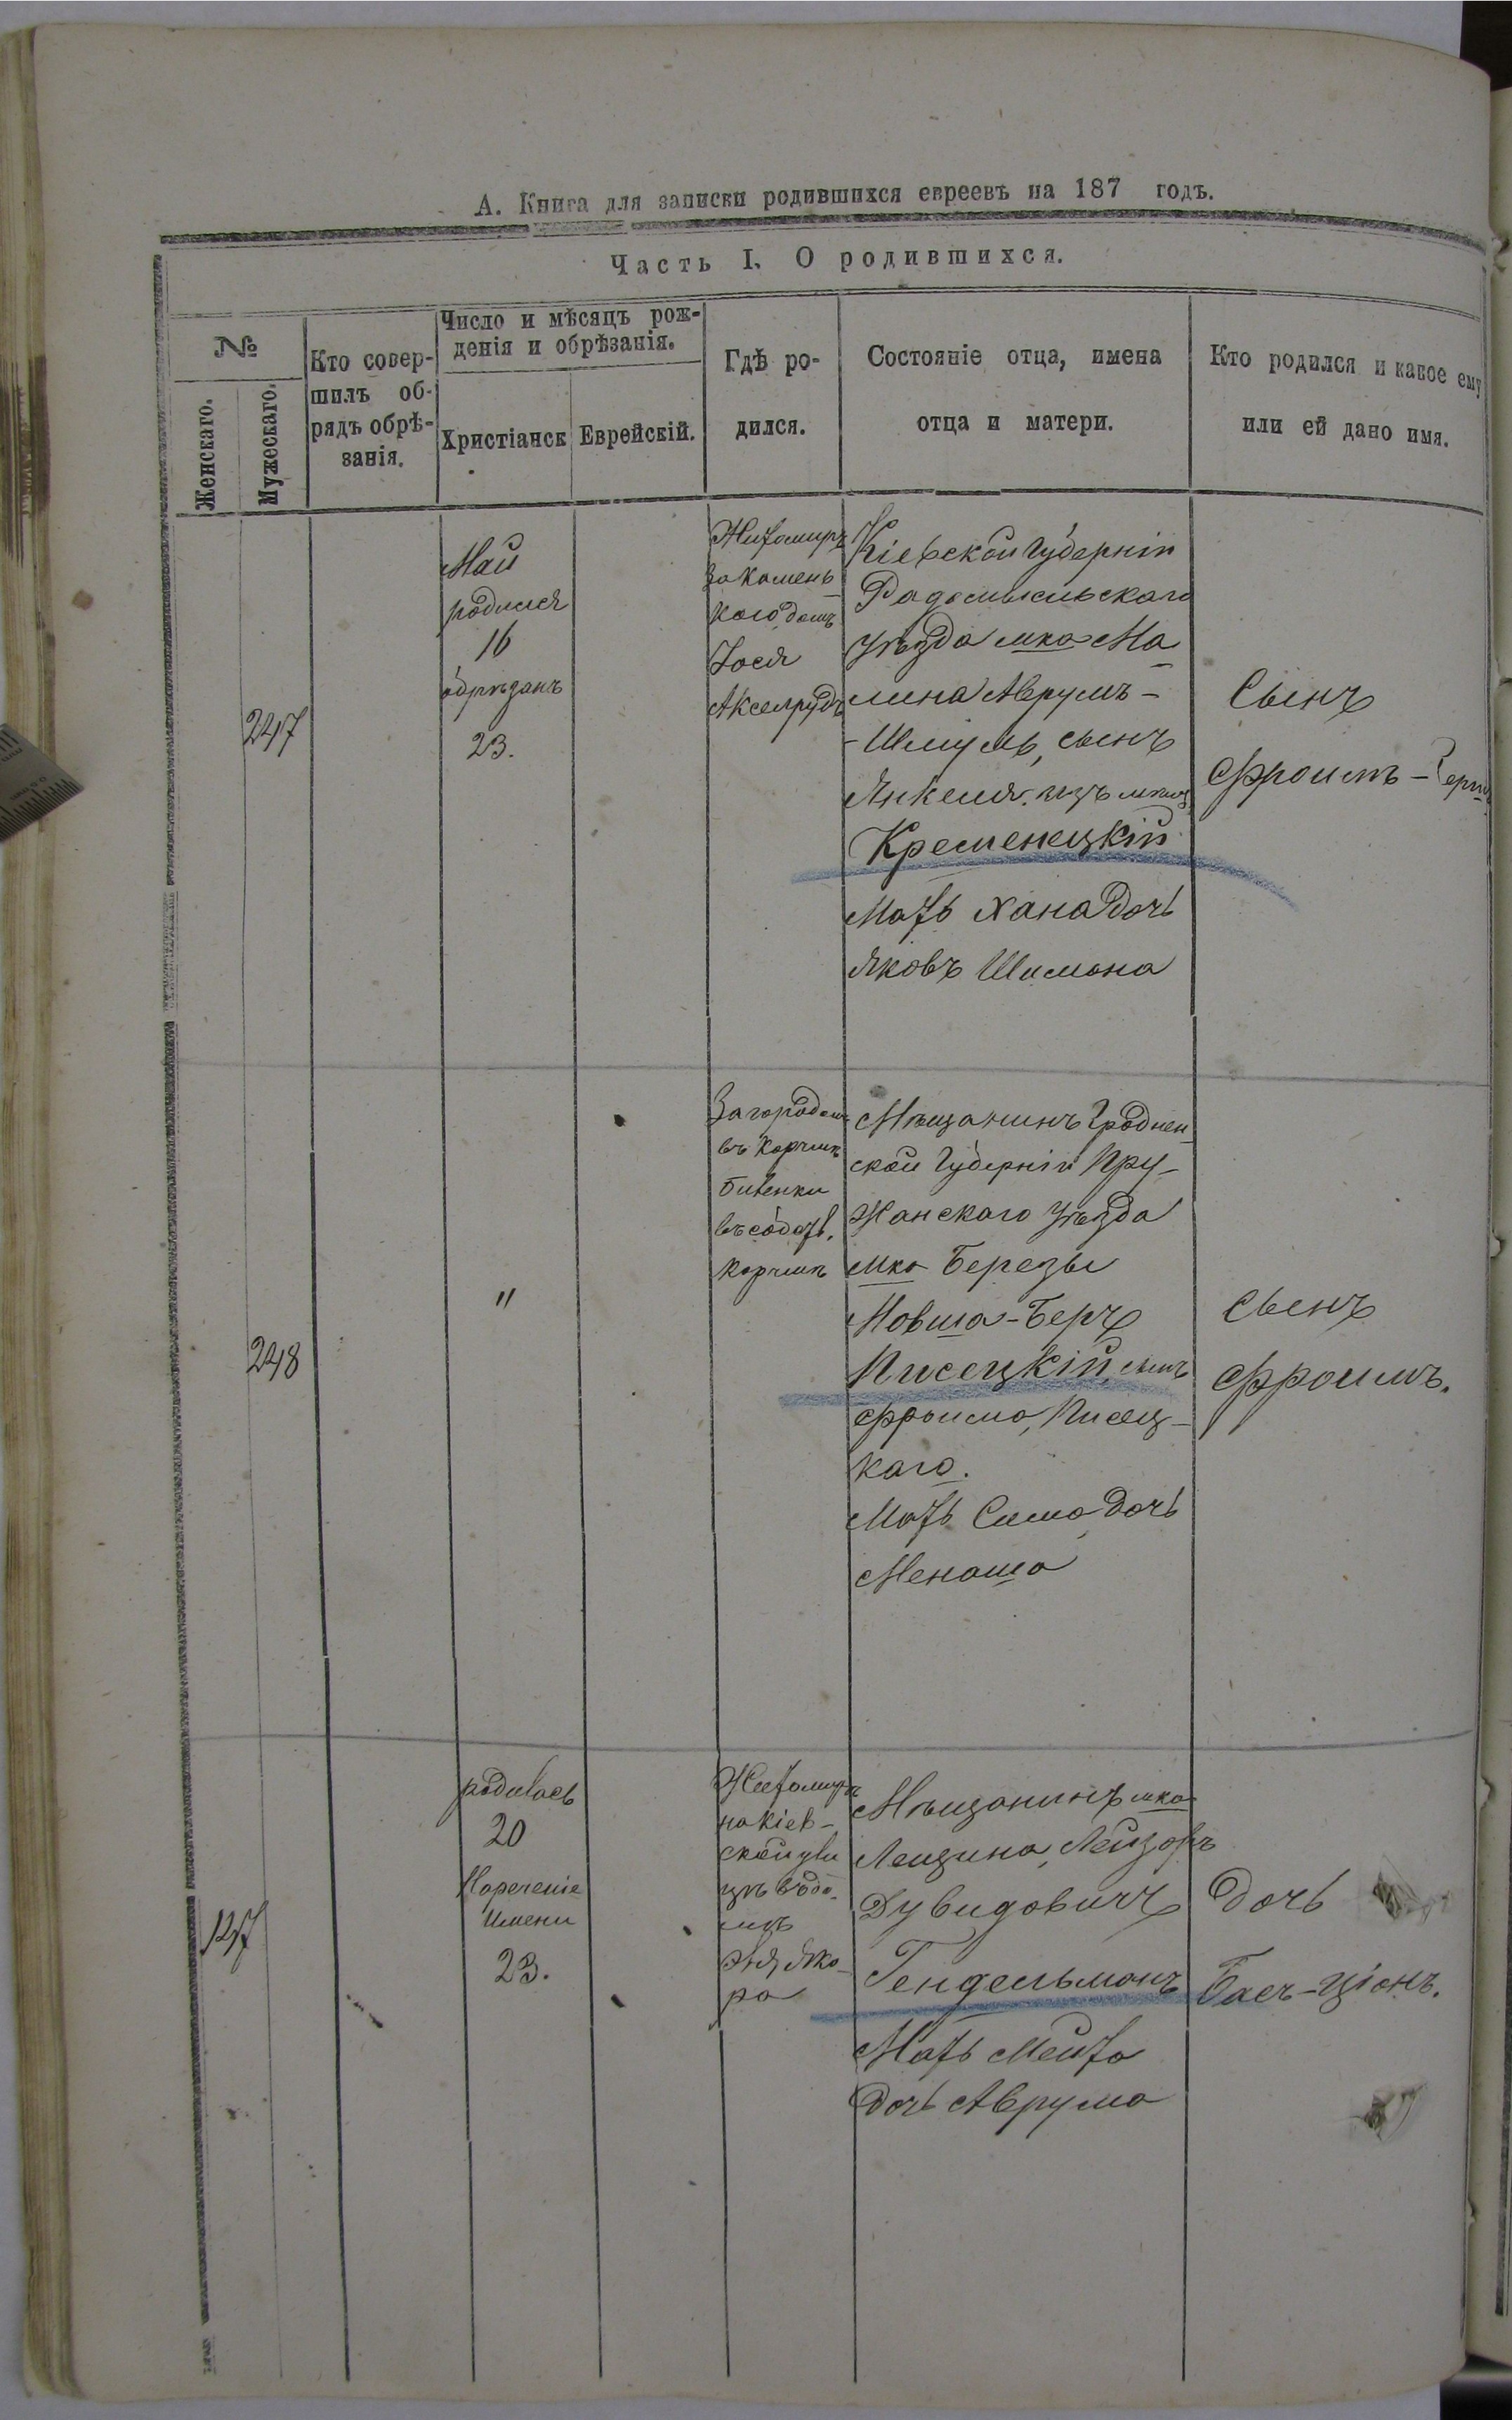 А. Книга для записки родившихся евреевъ на 187 годъ.
Часть I. О родившихся.
№
Женскаго.
Мужескаго.
Кто совер-
шилъ об-
рядъ обрѣ-
занія.
Число и мѣсяцъ рож-
денія и обрѣзанія.
Христіанск
Еврейскій.
Гдѣ ро-
дился.
Состояніе отца, имена
отца и матери.
Кто родился и какое ему
или ей дано имя.
247
Май
родился
16
обрѣзанъ
23.
Житомиръ
за Камень
кого домъ
Іося
Акселрудъ
Кіевской Губерніи
Радомысльскаго
уѣзда мка Ма
лина Аврумъ-
-Шмуль, сынъ
Янкеля
Кременецкій
Мать Хана дочь
Яковъ Шимона
Сынъ
Фроимъ-
248
"
За городомъ
въ Корчмѣ
въ собств.
Корчмѣ
Мѣщанинъ Гроднен
ской Губерніи Пру-
жанскаго уѣзда
мка Березы
Мовша-Беръ
Писецкій, сынъ
Фроима, Писец-
каго.
Мать Сима дочь
Менаша
Сынъ
Фроимъ.
127
родилась
20
Нареченіе
Имени
23.
Житомиръ
на Кіев-
ской ули
цѣ въ до-
мѣ
Мѣщанинъ мка
Лещина, Лейзоръ
Дувидовичъ
Гендельманъ
Мать Мейта
дочь Аврума
Дочь
Бась-Ціонъ.